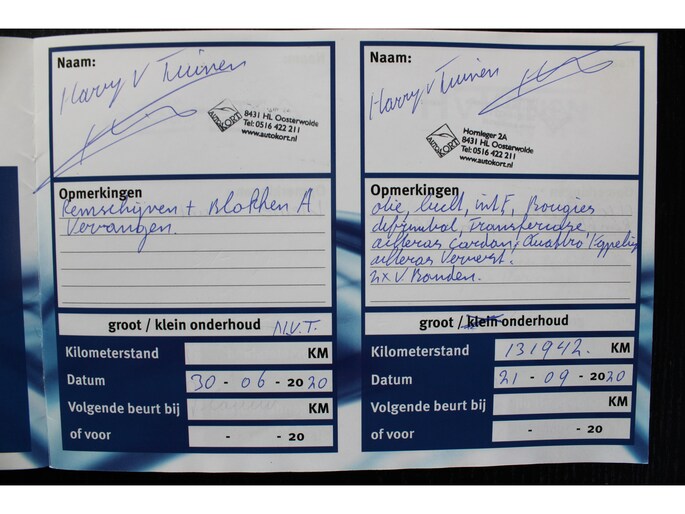 Naam:
Harry v Tuinen
AUTOKORT
8431 HL Oosterwolde
Tel: 0516 422 211
www.autokort.nl
Opmerkingen
Remschijven + Blokken A
Vervangen.
groot / klein onderhoud N.V.T.
Kilometerstand KM
Datum 30 - 06 - 2020
Volgende beurt bij KM
of voor - - 20
Naam:
Harry v Tuinen
AUTOKORT
Hornleger 2A
8431 HL Oosterwolde
Tel: 0516 422 211
www.autokort.nl
Opmerkingen
olie, lucht, int F, Bougies
Transfercase
achteras Cardan, Quattro Koppeling
achteras Ververst.
2x V Banden.
groot / klein onderhoud
Kilometerstand 131942. KM
Datum 21 - 09 - 2020
Volgende beurt bij KM
of voor - - 20